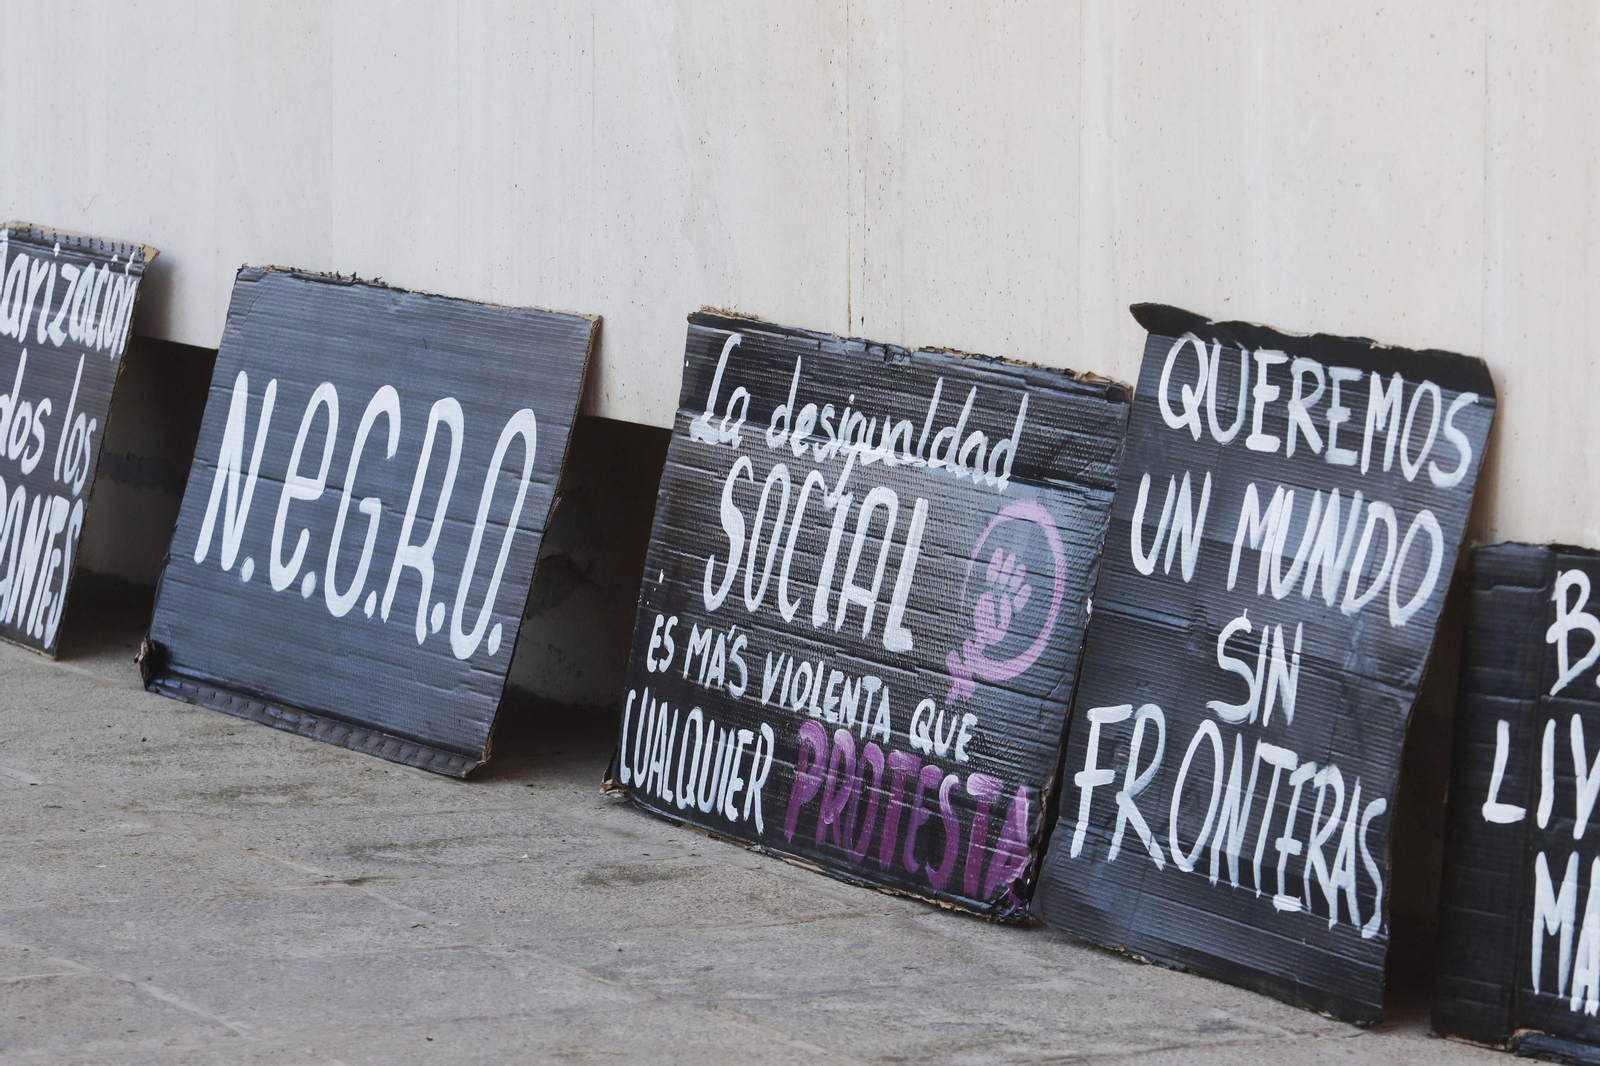 dos los
N.e.G.R.O.
La desigualdad
SOCIAL
ES MÁS VIOLENTA QUE
CUALQUIER PROTESTA
QUEREMOS
UN MUNDO
SIN
FRONTERAS
B
LIV
MA